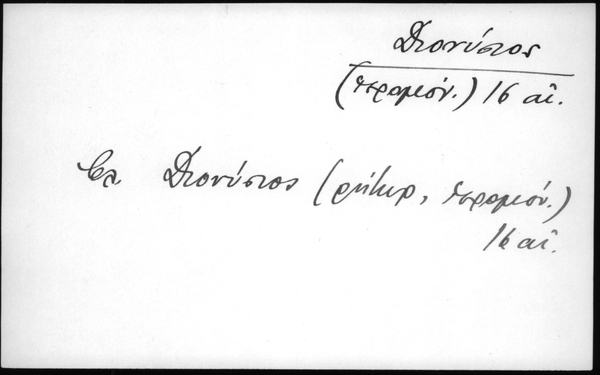 Διονύσιος
(ἱερομόν.) 16 αἰ.
βλ. Διονύσιος (ρήτωρ, ἱερομόν.)
16 αἰ.